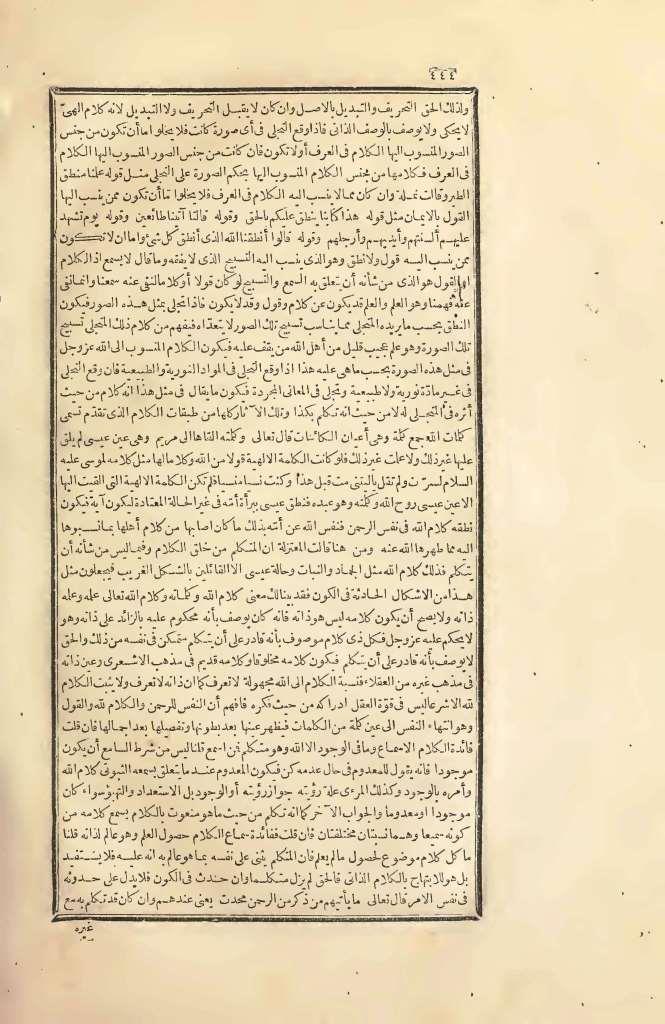 ٤٤٤
ولذلك الحق التحريف والتبديل بالاصل وان كان لا يقبل التحريف ولا التبديل لانه كلام الهىّ
لا يحكى ولا يوصف بالوصف الذاتى فاذا وقع التجلى فى أى صورة كانت فلا يخلو اما أن تكون من جنس
الصور المنسوب اليها الكلام فى العرف أو لا تكون فان كانت من جنس الصور المنسوب اليها الكلام
فى العرف فكلامها من جنس الكلام المنسوب اليها بحكم الصورة على التجلى مثل قوله علمنا منطق
الطير وقالت نملة وان كان مما لا ينسب اليه الكلام فى العرف فلا يخلو اما أن تكون ممن ينسب اليها
القول بالايمان مثل قوله هذا كتابنا ينطق عليكم بالحق وقوله قالتا أتينا طائعين وقوله يوم تشهد
عليهم ألسنتهم وأيديهم وأرجلهم وقوله قالوا أنطقنا الله الذى أنطق كل شىء واما ان لا تكون
ممن ينسب اليه قول ولا نطق وهو الذى ينسب اليه التسبيح الذى لا يفقه وما قال لا يسمع اذ الكلام
أو القول هو الذى من شأنه أن يتعلق به السمع والتسبيح لو كان قولا أو كلاما لنفى عنه سمعنا وانما نفى
عنه فهمنا وهو العلم والعلم قد يكون عن كلام وقول وقد لا يكون فاذا تجلى بمثل هذه الصور فيكون
النطق بحسب ما يريده المتجلى مما يناسب تسبيح تلك الصور لا يتعداه فيفهم من كلام ذلك المتجلى تسبيح
تلك الصورة وهو علم عجيب قليل من أهل الله من يقف عليه فيكون الكلام المنسوب الى الله عز وجل
فى مثل هذه الصورة بحسب ما هى عليه هذا اذا وقع التجلى فى المواد النورية والطبيعية فان وقع التجلى
فى غير مادة نورية ولا طبيعية وتجلى فى المعانى المجردة فيكون ما يقال فى مثل هذا انه كلام من حيث
أثره فى المتجلى له لا من حيث انه تكلم بكذا وتلك الآثار كلها من طبقات الكلام الذى تقدم تسمى
كلمات الله جمع كلمة وهى أعيان الكائنات قال تعالى وكلمته القاها الى مريم وهى عين عيسى لم يلق
عليها غير ذلك ولا علمت غير ذلك فلو كانت الكلمة الالهية قولا من الله وكلاما لها مثل كلامه لموسى عليه
السلام لسرّت ولم تقل يا ليتنى مت قبل هذا وكنت نسيا منسيا فلم تكن الكلمة الالهية التى القيت اليها
الا عين عيسى روح الله وكلمته وهو عبده فنطق عيسى ببراءة أمّه فى غير الحالة المعتادة ليكون آية فيكون
نطقه كلام الله فى نفس الرحمن فنفس الله عن أمّه بذلك ما كان اصابها من كلام أهلها بما نسبوها
اليه مما طهرها الله عنه ومن هنا قالت المعتزلة ان المتكلم من خلق الكلام وفيما ليس من شأنه أن
يتكلم فذلك كلام الله مثل الجماد والنبات وحالة عيسى الا القائلين بالشكل الغريب فيجعلون مثل
هذا من الاشكال الحادثة فى الكون فقد بينا لك معنى كلام الله وكلماته وكلام الله تعالى علمه وعلمه
ذاته ولا يصح أن يكون كلامه ليس هو ذاته فانه كان يوصف بأنه محكوم عليه بالزائد على ذاته وهو
لا يحكم عليه عز وجل فكل ذى كلام موصوف بأنه قادر على أن يتكلم متمكن فى نفسه من ذلك والحق
لا يوصف بأنه قادر على أن يتكلم فيكون كلامه مخلوقا وكلامه قديم فى مذهب الاشعرى وعين ذاته
فى مذهب غيره من العقلاء فنسبة الكلام الى الله مجهولة لا تعرف كما ان ذاته لا تعرف ولا يثبت الكلام
لله الا شرعا ليس فى قوّة العقل ادراكه من حيث فكره فافهم أن النفس للرحمن والكلام لله والقول
وهو انتهاء النفس الى عين كلمة من الكلمات فيظهر عينها بعد بطونها وتفصيلها بعد اجمالها فان قلت
فائدة الكلام الاسماع وما فى الوجود الا الله وهو متكلم فمن اسمع قلنا ليس من شرط السامع أن يكون
موجودا فانه يقول للمعدوم فى حال عدمه كن فيكون المعدوم عند ما يتعلق بسمعه الثبوتى كلام الله
وأمره بالوجود وكذلك المرئى علة رؤيته جواز رؤيته أو الوجود بل الاستعداد والتهيؤ سواء كان
موجودا أو معدوما والجواب الآخر كما انه تكلم من حيث ما هو منعوت بالكلام يسمع كلامه من
كونه سميعا وهما نسبتان مختلفتان فان قلت ففائدة سماع الكلام حصول العلم وهو عالم لذاته قلنا
ما كل كلام موضوع لحصول ما لم يعلم فان المتكلم يثنى على نفسه بما هو عالم به انه عليه فلا يستفيد
بل هو للابتهاج بالكلام الذاتى فالحق لم يزل متكلما وان حدث فى الكون فلا يدل على حدوثه
فى نفس الامر قال تعالى ما يأتيهم من ذكر من الرحمن محدث يعنى عندهم وان كان قد تكلم به مع
غيره